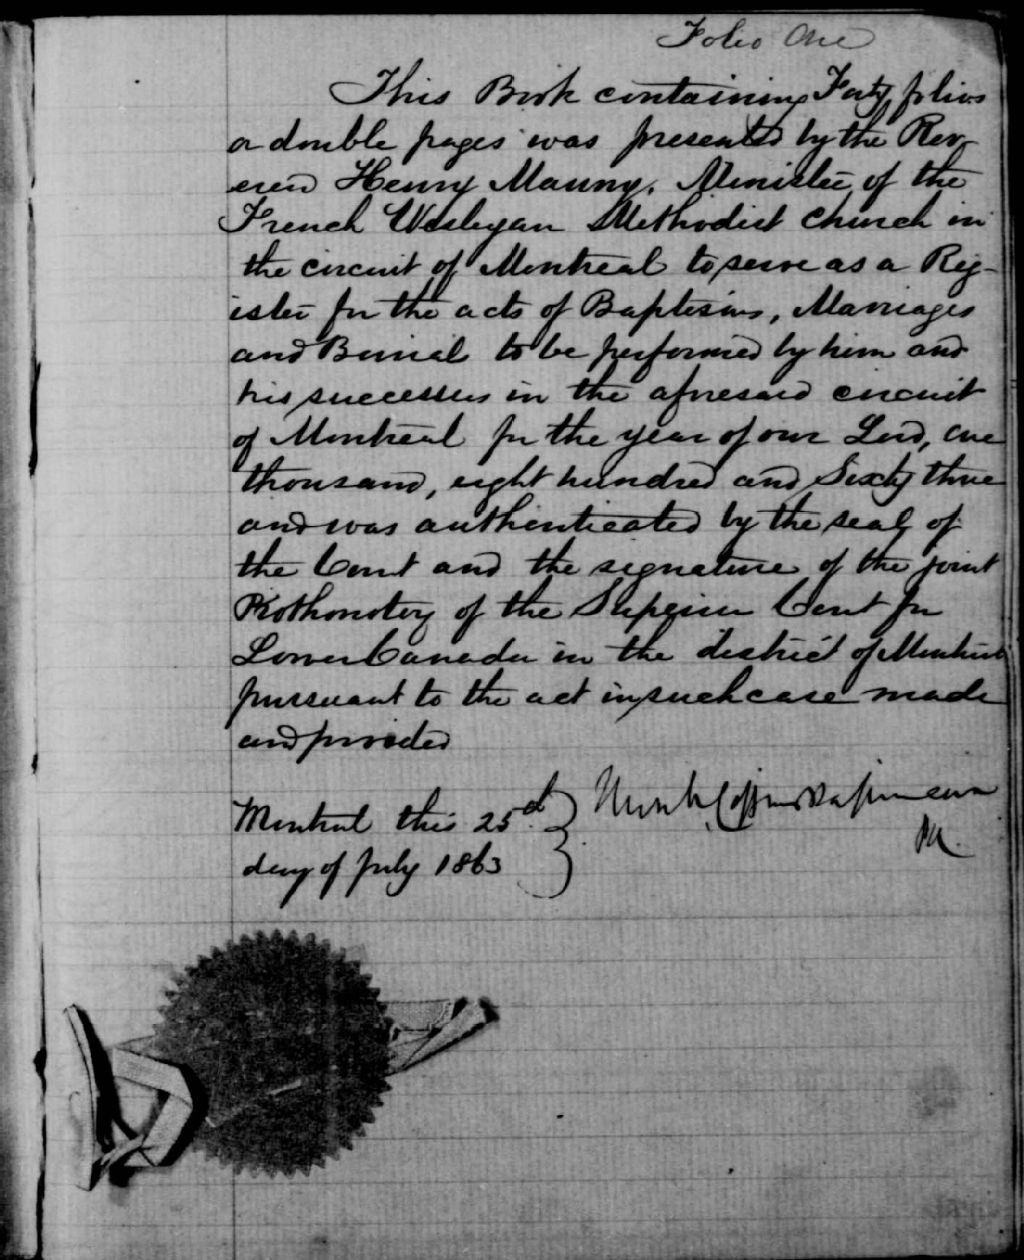 Folio One
This Book containing Forty folios
or double pages was presented by the Rev-
erend Henry Mauny, Minister of the
French Wesleyan Methodist Church in
the circuit of Montreal to serve as a Reg-
ister for the acts of Baptisms, Marriages
and Burial to be performed by him and
his successors in the aforesaid circuit
of Montreal for the year of our Lord, one
thousand, eight hundred and Sixty three
and was authenticated by the seal of
the Court and the signature of the joint
Prothonotary of the Superior Court for
Lower Canada in the district of Montreal
pursuant to the act in such case made
and provided
Montreal this 25d
day of July 1863
Monk Coffin & Papineau